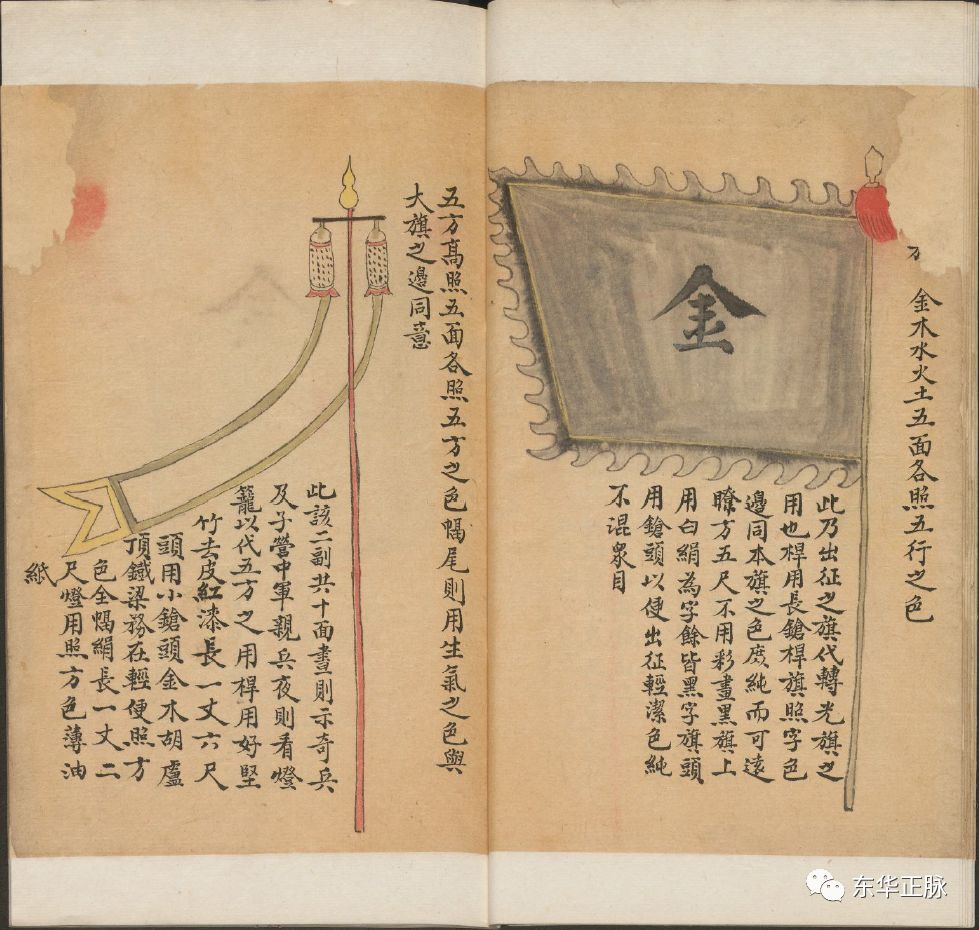 金木水火土五面各照五行之色
金
此乃出征之旗代轉光旗之
用也桿用長鎗桿旗照字色
邊同本旗之色庶純而可遠
瞭方五尺不用彩畫黑旗上
用白絹為字餘皆黑字旗頭
用鎗頭以便出征輕潔色純
不混衆目
五方高照五面各照五方之色幅尾則用生氣之色與
大旗之邊同意
此該二副共十面晝則示奇兵
及子營中軍親兵夜則看燈
籠以代五方之用桿用好堅
竹去皮紅漆長一丈六尺
頭用小鎗頭金木胡盧
頂鐵梁務在輕便照方
色全幅絹長一丈二
尺燈用照方色薄油
紙
东华正脉